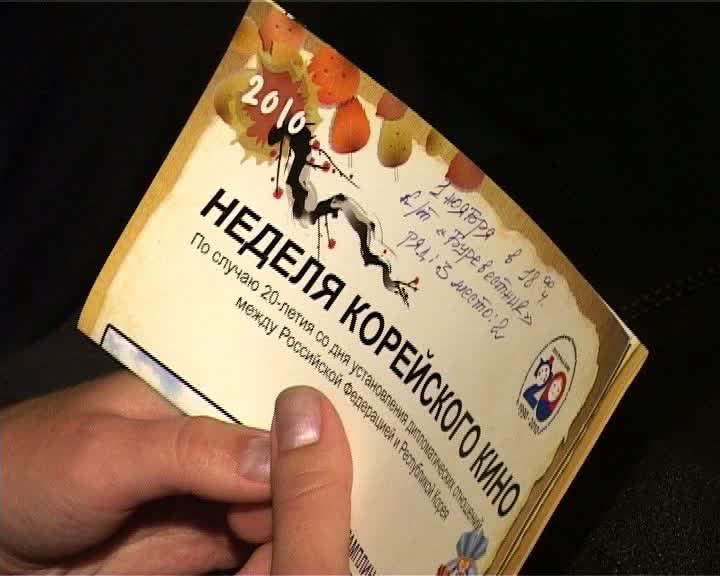 2010
2 ноября в 18 00 ч
к/т «Буревестник»
ряд: 3 место: 2
НЕДЕЛЯ КОРЕЙСКОГО КИНО
По случаю 20-летия со дня установления дипломатических отношений
между Российской Федерацией и Республикой Корея
20
1990 - 2010